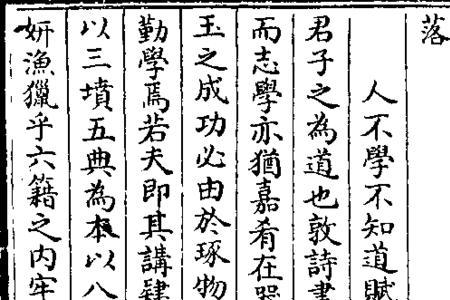 落
人不學不知道賦
君子之為道也敦詩書
而志學亦猶嘉肴在器
玉之成功必由於琢物
勤學焉若夫即其講肆
以三墳五典為本以八
妍漁獵乎六籍之内牢